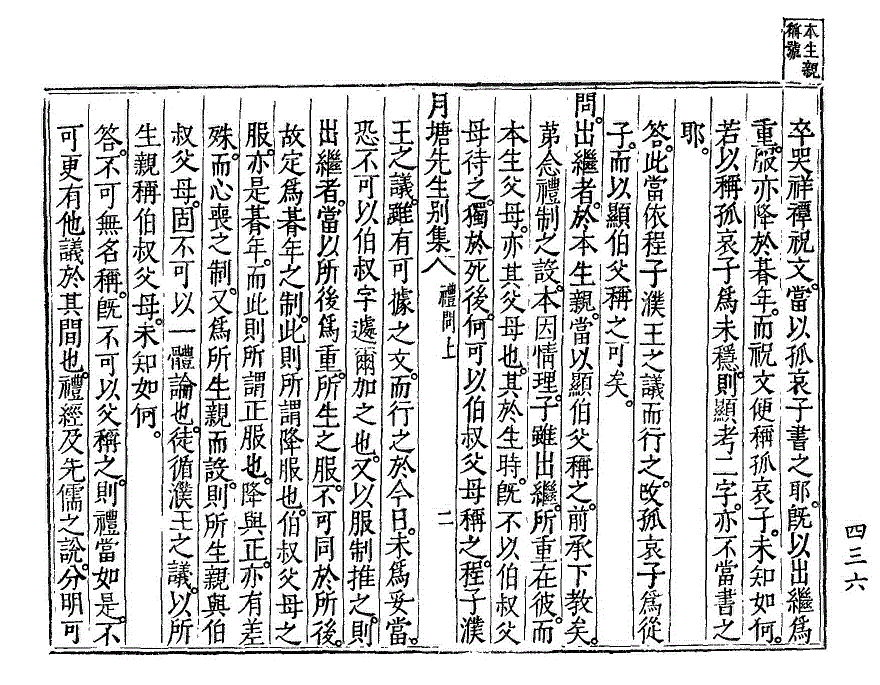 本生親
稱號
卒哭祥禫祝文。當以孤哀子書之耶。旣以出繼爲
重。服亦降於朞年。而祝文便稱孤哀子。未知如何。
若以稱孤哀子爲未穩。則顯考二字。亦不當書之
耶。
答。此當依程子濮王之議而行之。改孤哀子爲從
子。而以顯伯父稱之可矣。
問。出繼者。於本生親。當以顯伯父稱之。前承下敎矣。
第念禮制之設。本因情理。子雖出繼。所重在彼。而
本生父母。亦其父母也。其於生時。旣不以伯叔父
母待之。獨於死後。何可以伯叔父母稱之。程子濮
月塘先生別集八 禮問上 二
王之議。雖有可據之文。而行之於今日。未爲妥當。
恐不可以伯叔字遽爾加之也。又以服制推之。則
出繼者。當以所後爲重。所生之服。不可同於所後。
故定爲朞年之制。此則所謂降服也。伯叔父母之
服。亦是朞年。而此則所謂正服也。降與正。亦有差
殊。而心喪之制。又爲所生親而設。則所生親與伯
叔父母。固不可以一體論也。徒循濮王之議。以所
生親稱伯叔父母。未知如何。
答。不可無名稱。旣不可以父稱之。則禮當如是。不
可更有他議於其間也。禮經及先儒之說。分明可
四三六